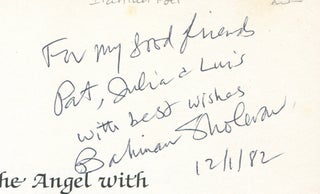 For my good friends
Pat, Julia & Luis
with best wishes
Bahman Sholevar
12/1/82
he Angel with